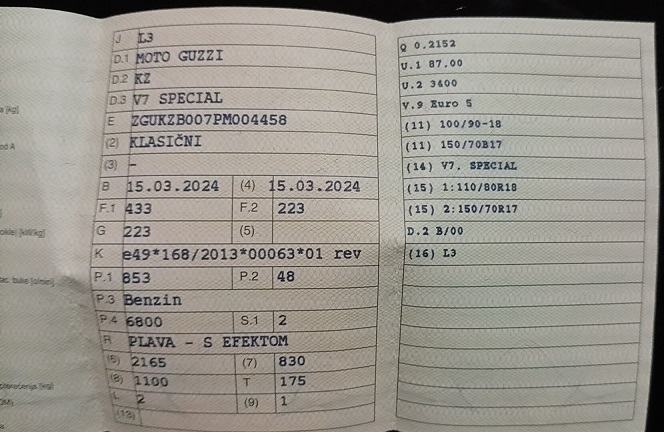 J L3
D.1 MOTO GUZZI
D.2 KZ
D.3 V7 SPECIAL
E ZGUKZB007PM004458
(2) KLASIČNI
(3) –
B 15.03.2024 (4) 15.03.2024
F.1 433 F.2 223
G 223 (5)
K e49*168/2013*00063*01 rev
P.1 853 P.2 48
P.3 Benzin
P.4 6800 S.1 2
R PLAVA - S EFEKTOM
(6) 2165 (7) 830
(8) 1100 T 175
L 2 (9) 1
(13)
Q 0.2152
U.1 87.00
U.2 3400
V.9 Euro 5
(11) 100/90-18
(11) 150/70B17
(14) V7. SPECIAL
(15) 1:110/80R18
(15) 2:150/70R17
D.2 B/00
(16) L3